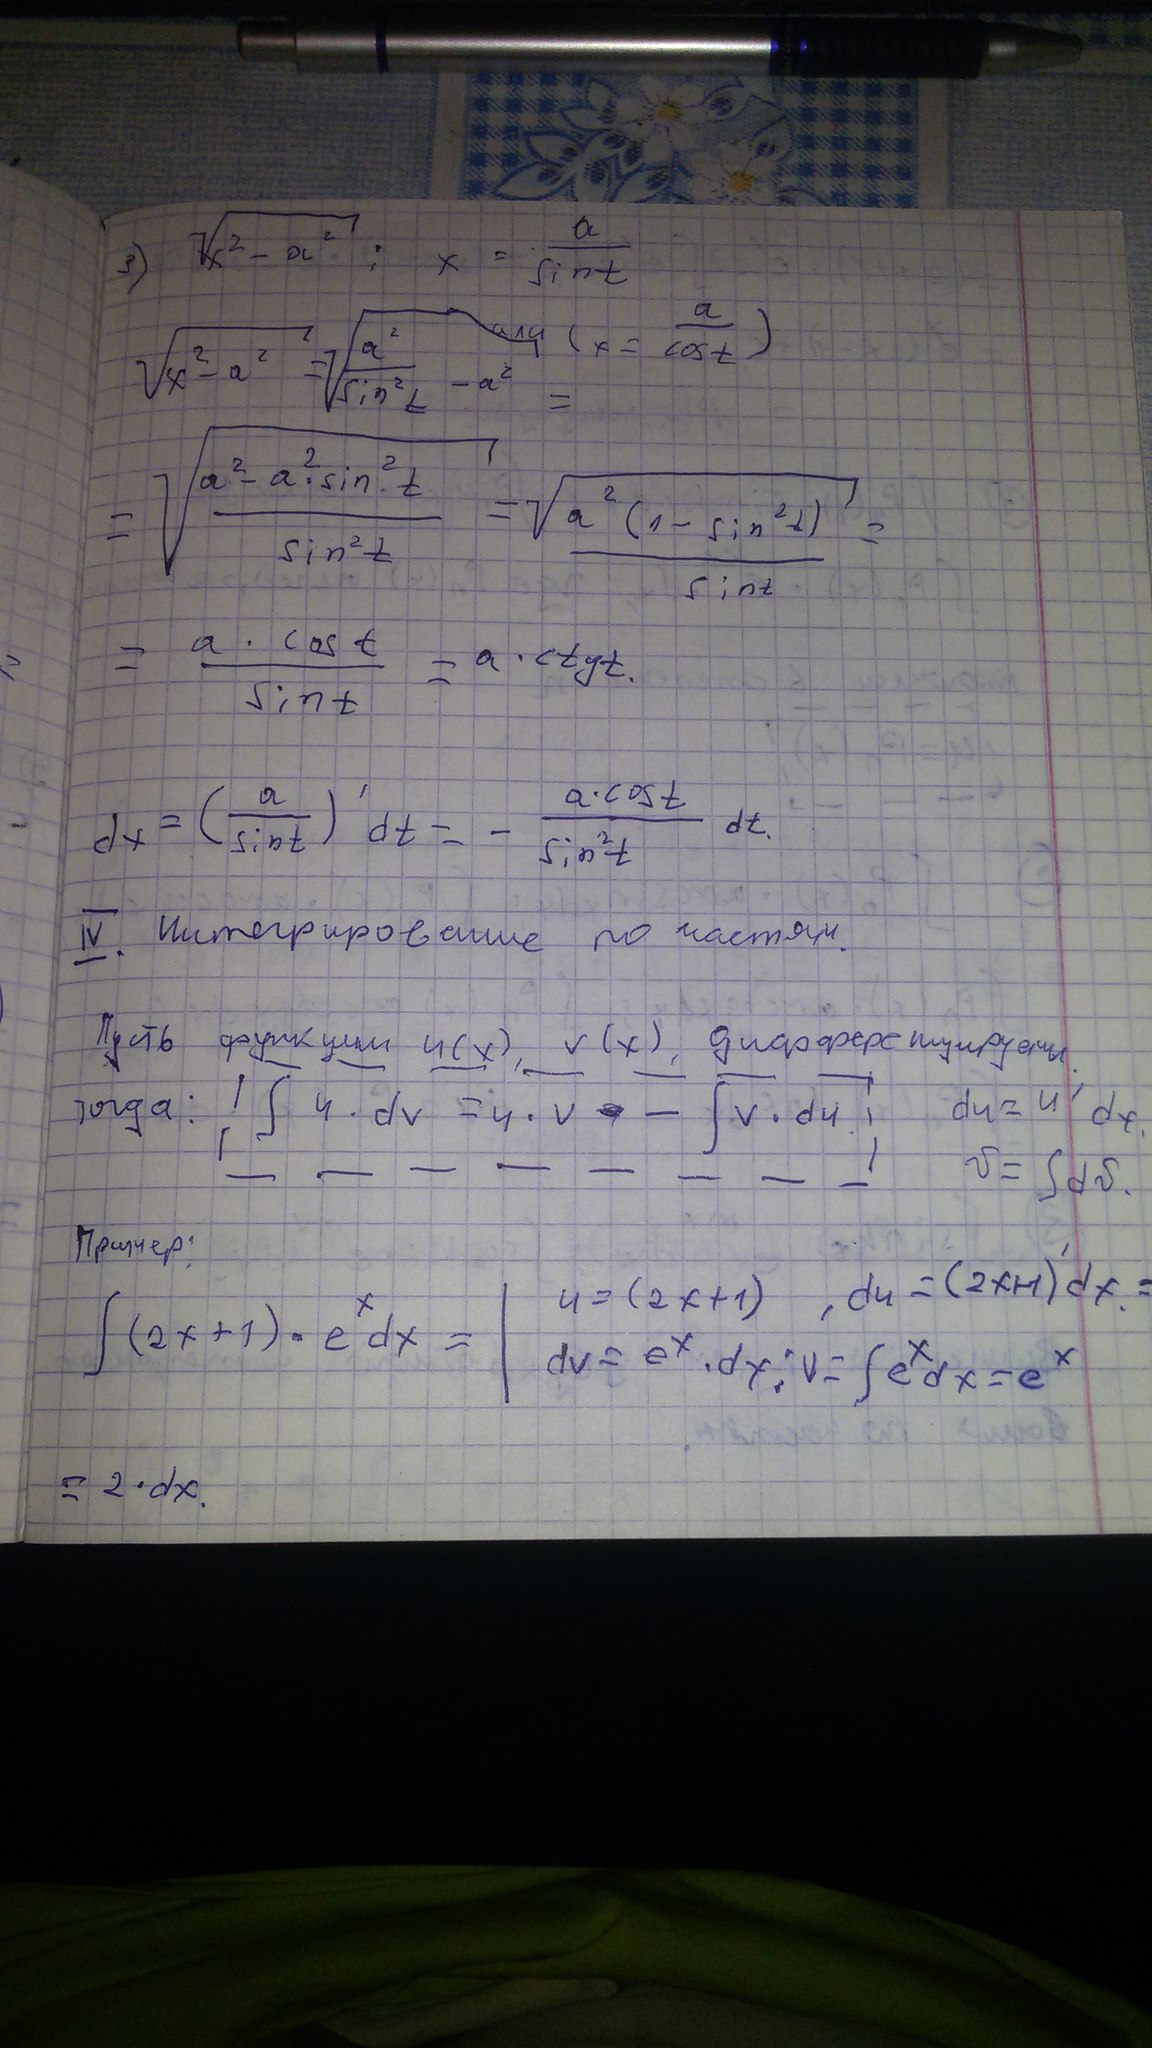 3) √(x² - a²); x = a/sin t
или (x = a/cos t)
√(x² - a²) = √(a²/sin²t - a²) =
= √((a² - a²·sin²t)/sin²t) = √(a²(1 - sin²t)/sin t) =
= a·cos t/sin t = a·ctg t.
dx = (a/sin t)' dt = - a·cos t/sin²t dt.
IV. Интегрирование по частям.
Пусть функции u(x), v(x), дифференцируемы.
тогда: ∫ u·dv = u·v - ∫ v·du du = u' dx.
v = ∫dv.
Пример:
∫(2x+1)·eˣdx = | u = (2x+1), du = (2x+1)'dx. =
dv = eˣ·dx; v = ∫eˣdx = eˣ
= 2·dx.